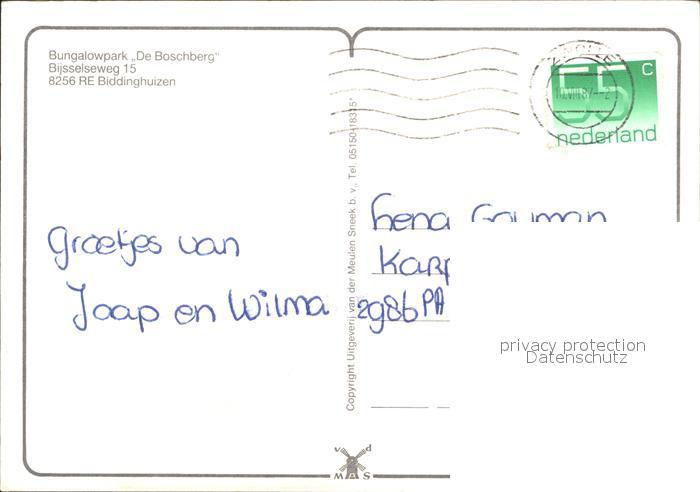 Bungalowpark „De Boschberg"
Bijsselseweg 15
8256 RE Biddinghuizen
Groetjes van
Jaap en Wilma
Copyright Uitgeverij van der Meulen Sneek b. v., Tel. 05150-18315*
55 c
nederland
Lena
Karp
2986 PA
privacy protection
Datenschutz
v d
M A S